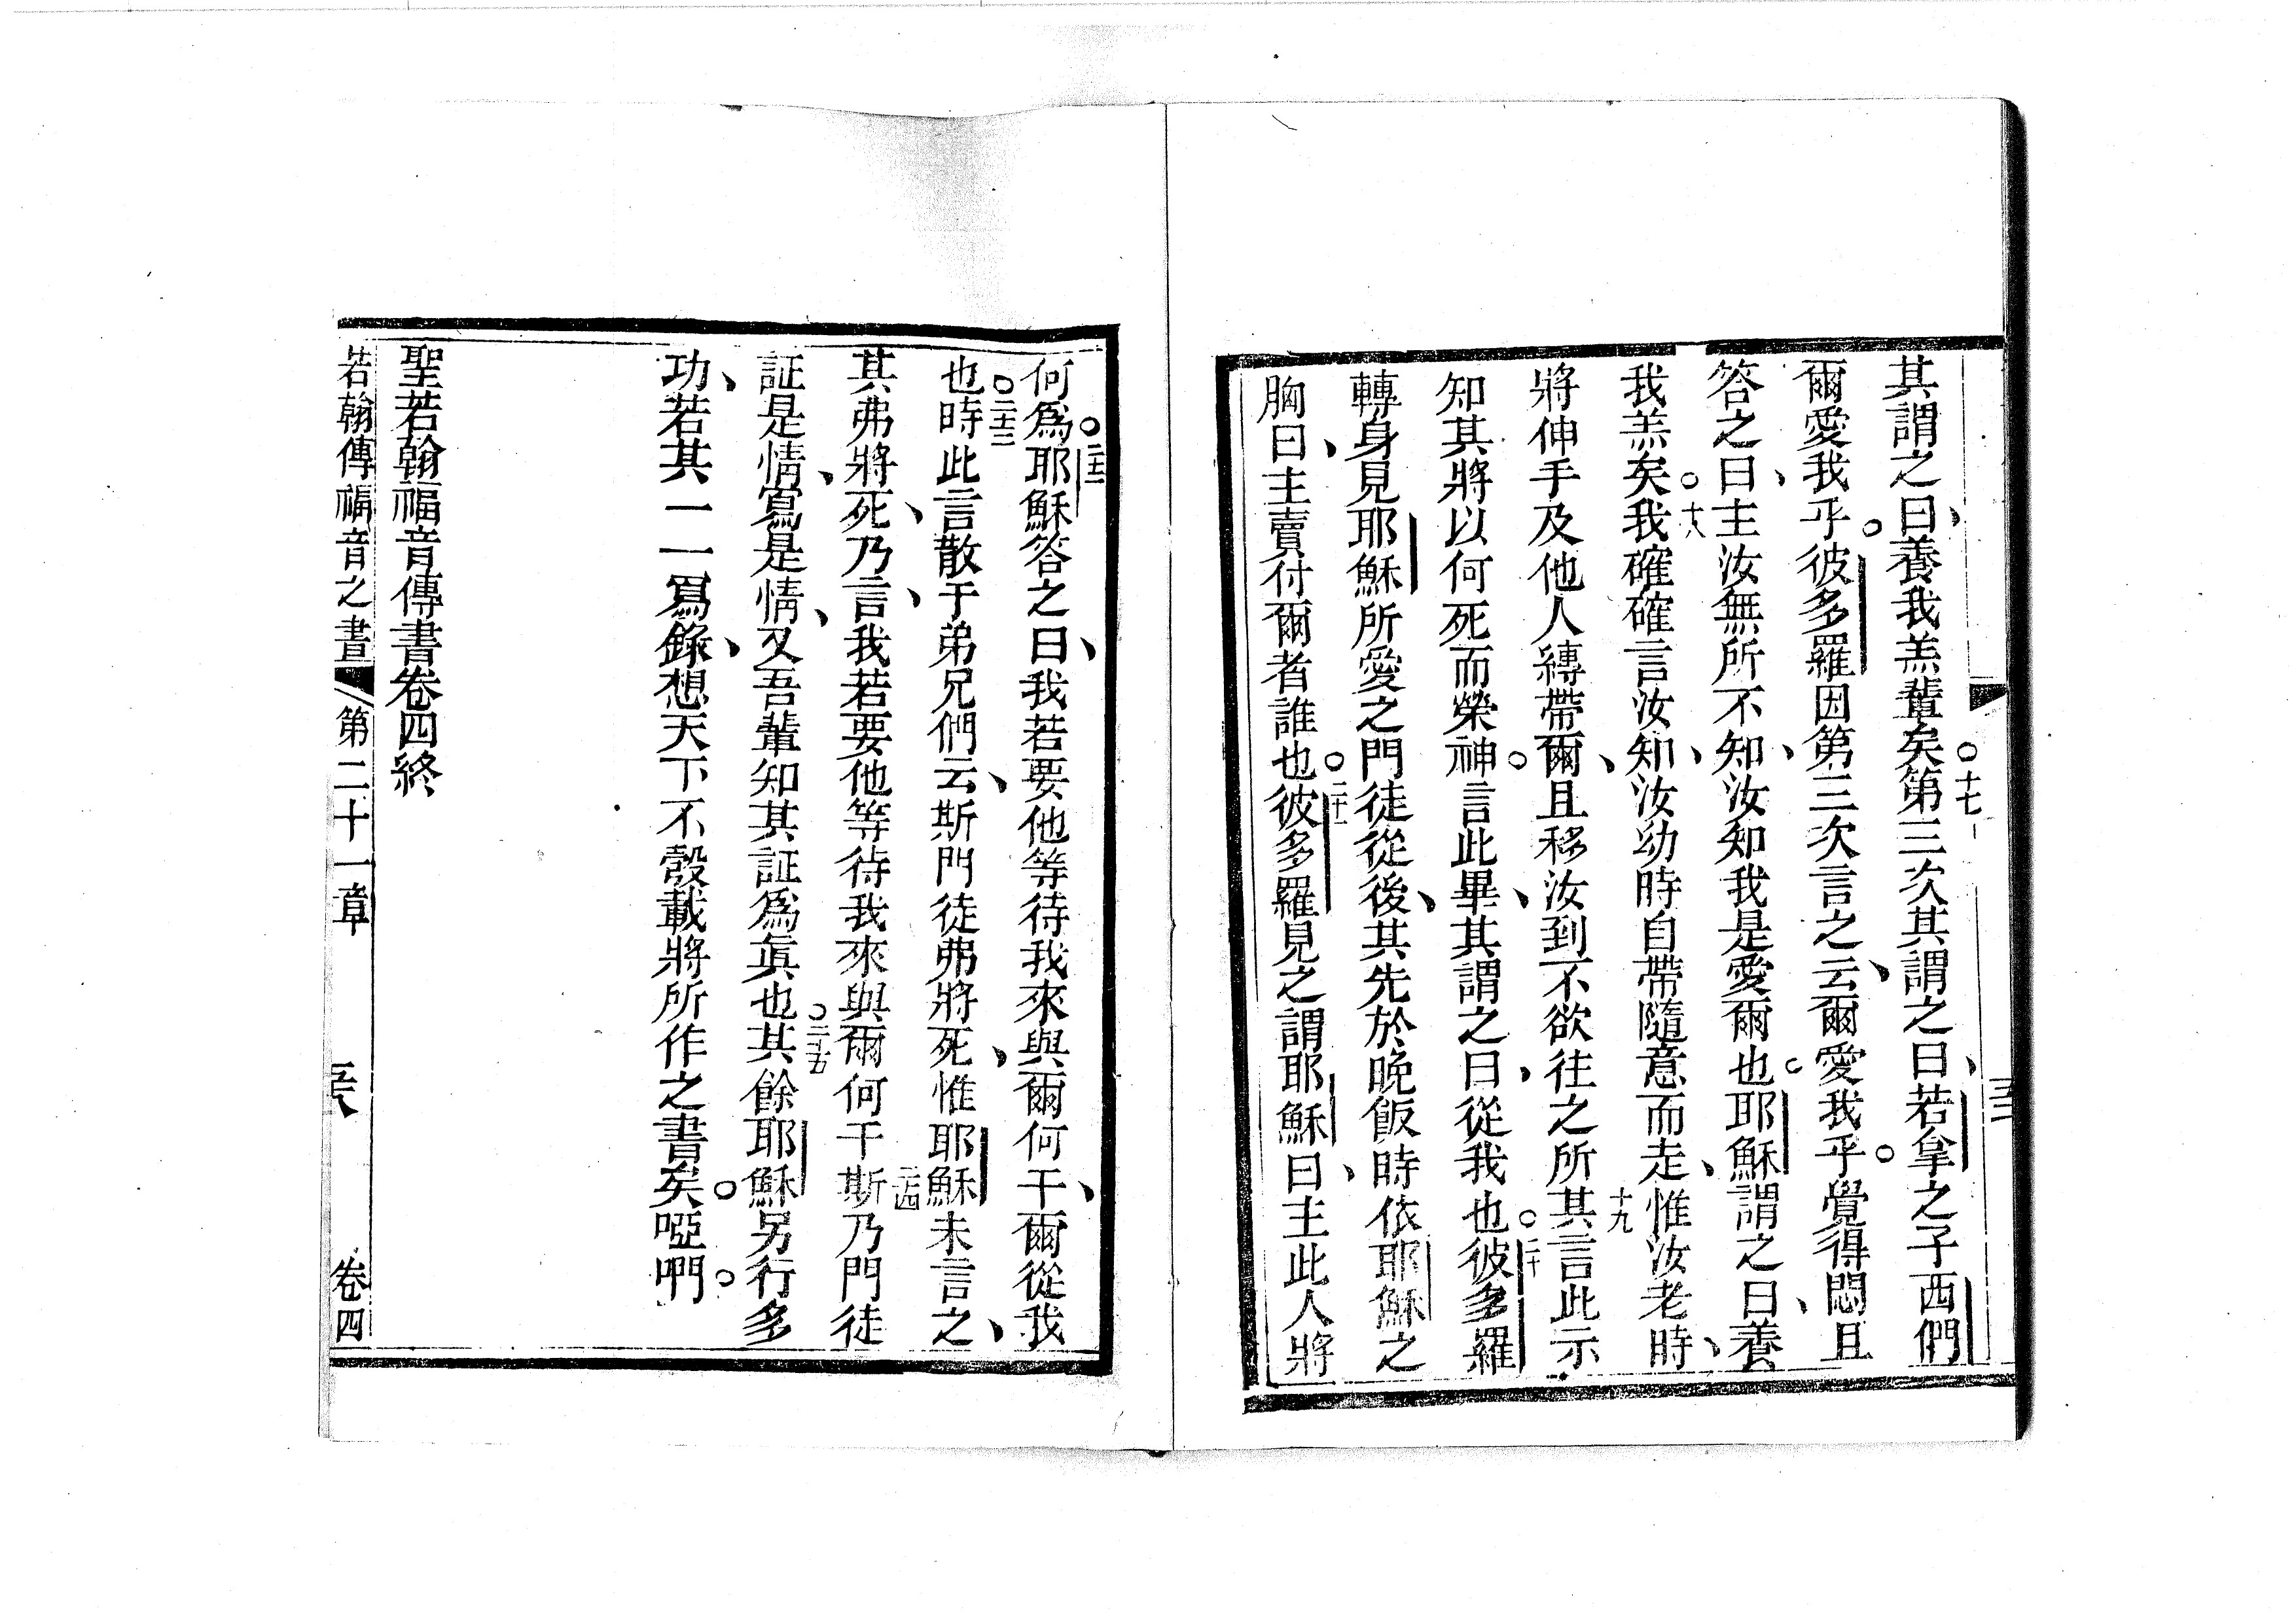 其謂之曰、養我羔輩矣。十七第三次其謂之曰、若拿之子西們
爾愛我乎。彼多羅因第三次言之云、爾愛我乎。覺得悶且
答之曰、主汝無所不知、汝知我是愛爾也。耶穌謂之曰、養
我羔矣。十八我確確言汝知、汝幼時自帶隨意而走、惟汝老時、
將伸手及他人縛帶爾、且移汝到不欲往之所十九其言此示
知其將以何死而榮神。言此畢、其謂之曰、從我也。二十彼多羅
轉身見耶穌所愛之門徒從後、其先於晚飯時依耶穌之
胸曰、主賣付爾者誰也。二十一彼多羅見之謂耶穌曰、主此人將
何爲。二十二耶穌答之曰、我若要他等待我來與爾何干、爾從我
也。二十三時此言散于弟兄們云、斯門徒弗將死、惟耶穌未言之、
其弗將死、乃言、我若要他等待我來與爾何干二十四斯乃門徒
証是情、寫是情、又吾輩知其証爲眞也。二十五其餘耶穌另行多
功、若其一一寫錄、想天下不彀載將所作之書矣。啞們。
聖若翰福音傳書卷四終
若翰傳福音之書 第二十一章 卷四